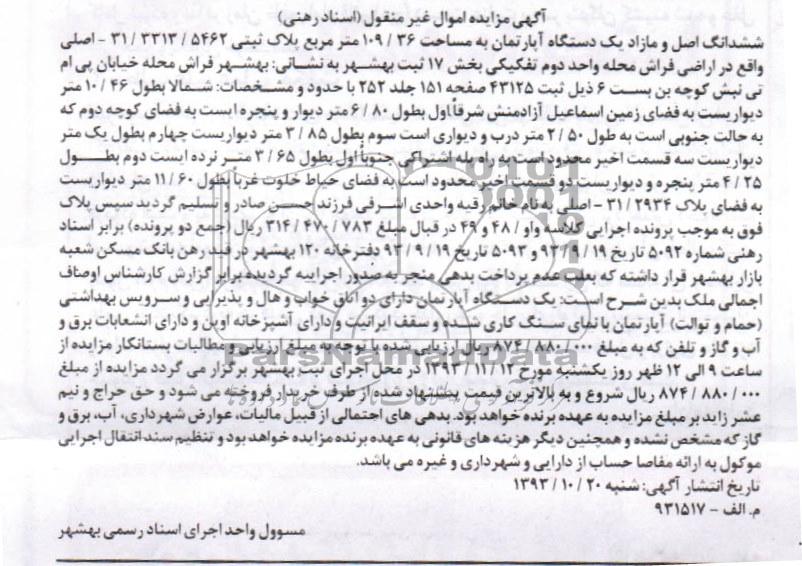 آگهی مزایده اموال غیر منقول (اسناد رهنی)
ششدانگ اصل و مازاد یک دستگاه آپارتمان به مساحت ۳۶ / ۱۰۹ متر مربع پلاک ثبتی ۵۴۶۲ / ۳۳۱۳ / ۳۱ - اصلی
واقع در اراضی فراش محله واحد دوم تفکیکی بخش ۱۷ ثبت بهشهر به نشانی: بهشهر فراش محله خیابان پی ام
تی نبش کوچه بن بست ۶ ذیل ثبت ۴۳۱۲۵ صفحه ۱۵۱ جلد ۲۵۲ با حدود و مشخصات: شمالا بطول ۴۶ / ۱۰ متر
دیواریست به فضای زمین اسماعیل آزادمنش شرقاً اول بطول ۸۰ / ۶ متر دیوار و پنجره ایست به فضای کوچه دوم که
به حالت جنوبی است به طول ۵۰ / ۲ متر درب و دیواری است سوم بطول ۸۵ / ۳ متر دیواریست چهارم بطول یک متر
دیواریست سه قسمت اخیر محدود است به راه پله اشتراکی جنوباً اول بطول ۶۵ / ۳ متر نرده ایست دوم بطول
۲۵ / ۴ متر پنجره و دیواریست دو قسمت اخیر محدود است به فضای حیاط خلوت غربا بطول ۶۰ / ۱۱ متر دیواریست
به فضای پلاک ۲۹۳۴ / ۳۱ - اصلی به نام خانم رقیه واحدی اشرفی فرزند حسن صادر و تسلیم گردید سپس پلاک
فوق به موجب پرونده اجرایی کلاسه واو / ۴۸ و ۴۹ در قبال مبلغ ۷۸۳ / ۴۷۰ / ۳۱۴ ریال (جمع دو پرونده) برابر اسناد
رهنی شماره ۵۰۹۲ تاریخ ۱۹ / ۹ / ۹۳ و ۵۰۹۳ تاریخ ۱۹ / ۹ / ۹۳ دفترخانه ۱۲۰ بهشهر در قید رهن بانک مسکن شعبه
بازار بهشهر قرار داشته که بعلت عدم پرداخت بدهی منجر به صدور اجراییه گردیده برابر گزارش کارشناس اوصاف
اجمالی ملک بدین شرح است: یک دستگاه آپارتمان دارای دو اتاق خواب و هال و پذیرایی و سرویس بهداشتی
(حمام و توالت) آپارتمان با نمای سنگ کاری شده و سقف ایرانیت و دارای آشپزخانه اوپن و دارای انشعابات برق و
آب و گاز و تلفن که به مبلغ ۰۰۰ / ۸۸۰ / ۸۷۴ ریال ارزیابی شده با توجه به مبلغ ارزیابی و مطالبات بستانکار مزایده از
ساعت ۹ الی ۱۲ ظهر روز یکشنبه مورخ ۱۲ / ۱۱ / ۱۳۹۳ در محل اجرای ثبت بهشهر برگزار می گردد مزایده از مبلغ
۰۰۰ / ۸۸۰ / ۸۷۴ ریال شروع و به بالاترین قیمت پیشنهاد شده از طرف خریدار فروخته می شود و حق حراج و نیم
عشر زاید بر مبلغ مزایده به عهده برنده خواهد بود. بدهی های احتمالی از قبیل مالیات، عوارض شهرداری، آب، برق و
گاز که مشخص نشده و همچنین دیگر هزینه های قانونی به عهده برنده مزایده خواهد بود و تنظیم سند انتقال اجرایی
موکول به ارائه مفاصا حساب از دارایی و شهرداری و غیره می باشد.
تاریخ انتشار آگهی: شنبه ۲۰ / ۱۰ / ۱۳۹۳
م. الف - ۹۳۱۵۱۷
مسوول واحد اجرای اسناد رسمی بهشهر
ParsNamadData